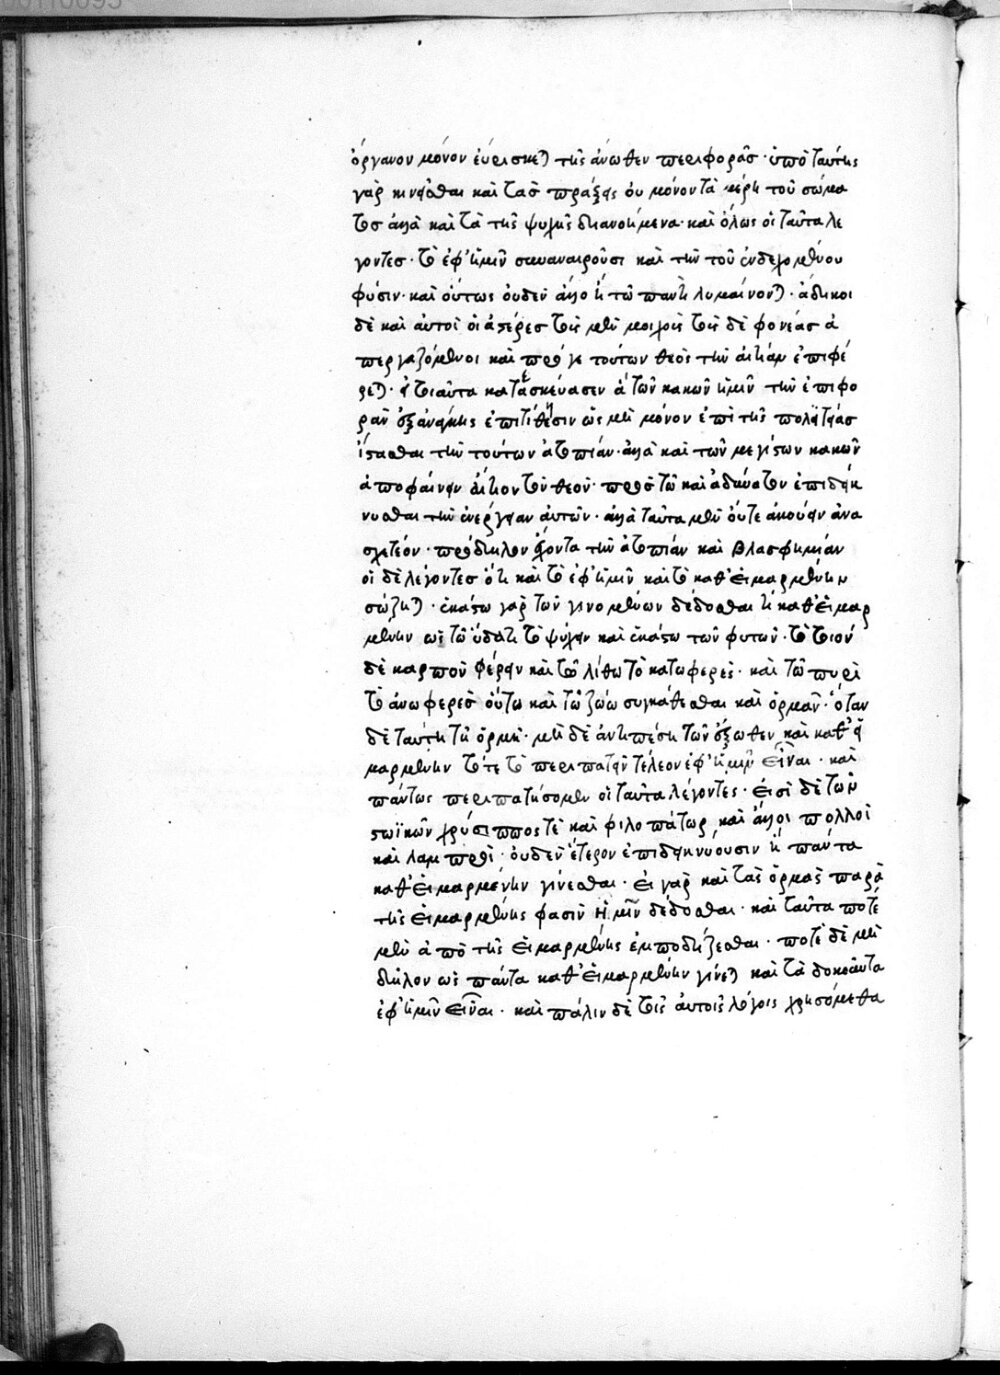 ὄργανον μόνον εὑρίσκεται τῆς ἄνωθεν περιφορᾶς· ὑπὸ ταύτης
γὰρ κινεῖσθαι καὶ τὰς πράξεις οὐ μόνον τὰ μέρη τοῦ σώμα
τος ἀλλὰ καὶ τὰ τῆς ψυχῆς διανοήμενα· καὶ ὅλως οἱ ταῦτα λέ
γοντες· τὸ ἐφ' ἡμῖν συναναιροῦσι καὶ τὴν τοῦ ἐνδεχομένου
φύσιν· καὶ οὕτως οὐδὲν ἄλλο ἢ τὸ πᾶν λυμαίνονται· ἄδικοι
δὲ καὶ αὐτοὶ οἱ ἀστέρες τοὺς μὲν μοιχοὺς τοὺς δὲ φονέας ἀ
περγαζόμενοι καὶ πρό γε τούτων θεὸς τὴν αἰτίαν ἐπιφέ
ρεται· εἰ τοιαῦτα κατεσκεύασεν ἃ τῶν κακῶν ἡμῖν τὴν ἐπιφο
ρὰν ἐξ ἀνάγκης ἐπιτίθησιν ὡς μὴ μόνον ἐπὶ τῆς πολιτείας
ἵστασθαι τὴν τούτων ἀτοπίαν· ἀλλὰ καὶ τῶν μεγίστων κακῶν
ἀποφαίνειν αἴτιον τὸν θεόν· πρὸς τῷ καὶ ἀδύνατον ἐπιδείκ
νυσθαι τὴν ἐνέργειαν αὐτῶν· ἀλλὰ ταῦτα μὲν οὔτε ἀκούειν ἀνα
σχετέον· πρόδηλον ἔχοντα τὴν ἀτοπίαν καὶ βλασφημίαν
οἱ δὲ λέγοντες ὅτι καὶ τὸ ἐφ' ἡμῖν καὶ τὸ καθ' εἱμαρμένην
σώζεται· ἑκάστω γὰρ τῶν γινομένων δέδοσθαι τι καθ' εἱμαρ
μένην ὡς τῶ ὕδατι τὸ ψύχειν καὶ ἑκάστω τῶν φυτῶν· τὸ τοιόν
δε καρπὸν φέρειν καὶ τῶ λίθω τὸ κατωφερές· καὶ τῶ πυρὶ
τὸ ἀνωφερὲς οὕτω καὶ τῶ ζώω συγκατίθεσθαι καὶ ὁρμᾶν· ὅταν
δὲ ταύτη τῆ ὁρμῆ· μηδὲ ἀντιπέση τῶν ἔξωθεν καὶ καθ' εἱ
μαρμένην τότε τὸ περιπατεῖν τέλεον ἐφ' ἡμῖν εἶναι· καὶ
πάντως περιπατήσομεν οἱ ταῦτα λέγοντες· εἰσὶ δὲ τῶν
στωϊκῶν χρύσιππός τε καὶ φιλοπάτωρ καὶ ἄλλοι πολλοὶ
καὶ λαμπροί· οὐδὲν ἕτερον ἐπιδεικνύουσιν ἢ πάντα
καθ' εἱμαρμένην γίνεσθαι· εἰ γὰρ καὶ τὰς ὁρμὰς παρὰ
τῆς εἱμαρμένης φασὶν ἡμῖν δέδοσθαι· καὶ ταῦτα ποτὲ
μὲν ἀπὸ τῆς εἱμαρμένης ἐμποδίζεσθαι· ποτὲ δὲ μὴ
δῆλον ὡς πάντα καθ' εἱμαρμένην γίνεται καὶ τὰ δοκοῦντα
ἐφ' ἡμῖν εἶναι· καὶ πάλιν δὲ τοῖς αὐτοῖς λόγοις χρησόμεθα